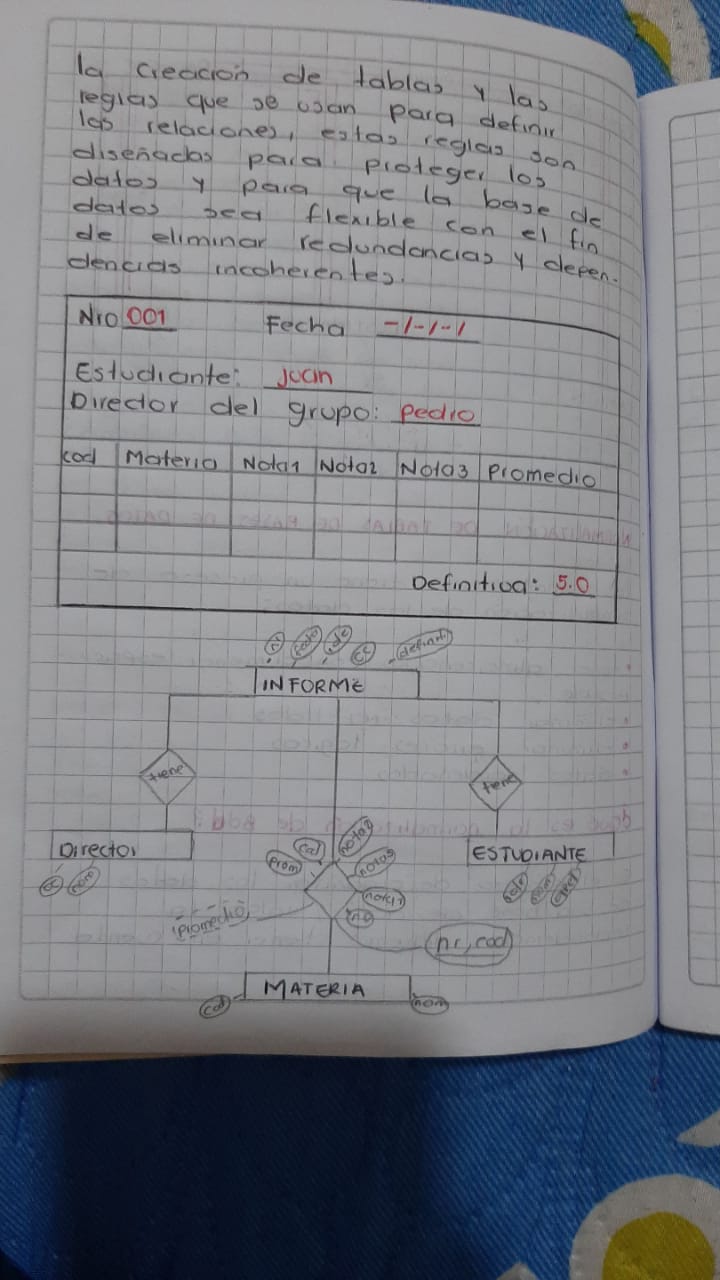 la creación de tablas y las
reglas que se usan para definir
las relaciones, estas reglas son
diseñadas para proteger los
datos y para que la base de
datos sea flexible con el fin
de eliminar redundancias y depen-
dencias incoherentes.
Nro 001 Fecha -/-/-/
Estudiante: Juan
Director del grupo: Pedro
cod Materia Nota1 Nota2 Nota3 Promedio
Definitiva: 5.0
INFORME
tiene tiene
Director ESTUDIANTE
cc nom
prom nota2
nota3
nota1
promedio
nr, cod
MATERIA
cod nom